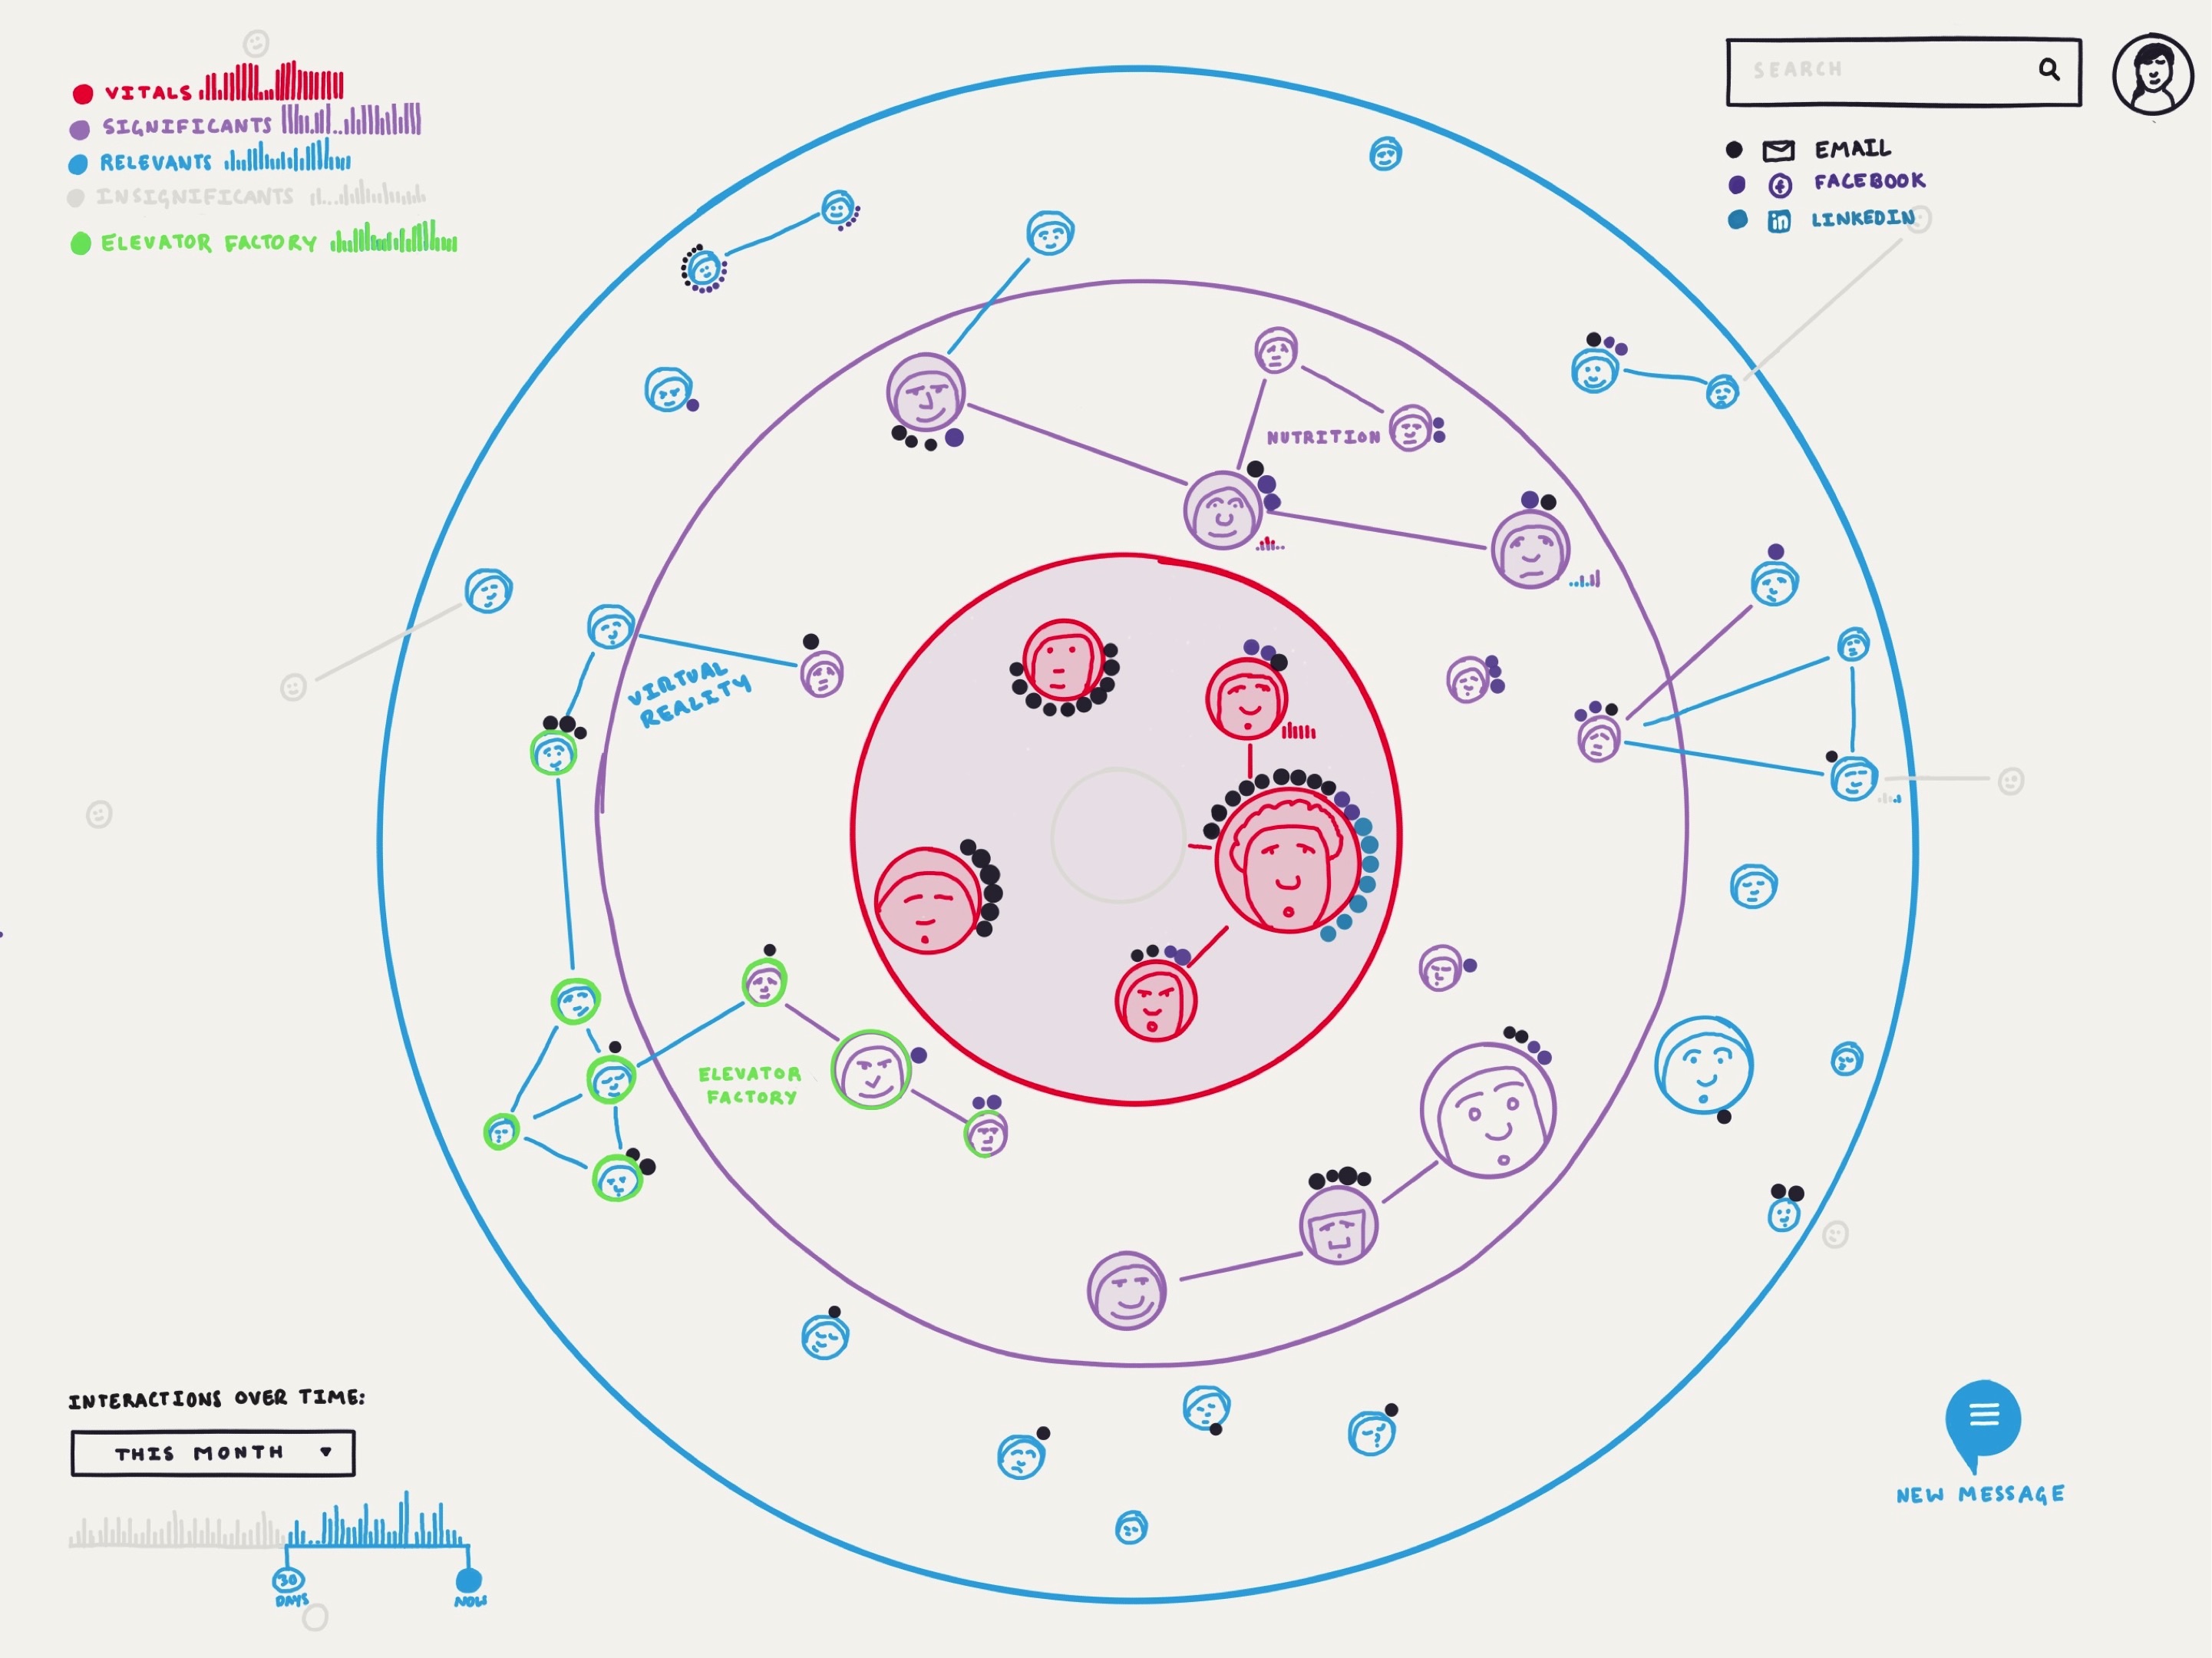 VITALS
SIGNIFICANTS
RELEVANTS
INSIGNIFICANTS
ELEVATOR FACTORY
SEARCH
EMAIL
FACEBOOK
in LINKEDIN
NUTRITION
VIRTUAL
REALITY
ELEVATOR
FACTORY
INTERACTIONS OVER TIME:
THIS MONTH
30
DAYS
NOW
NEW MESSAGE